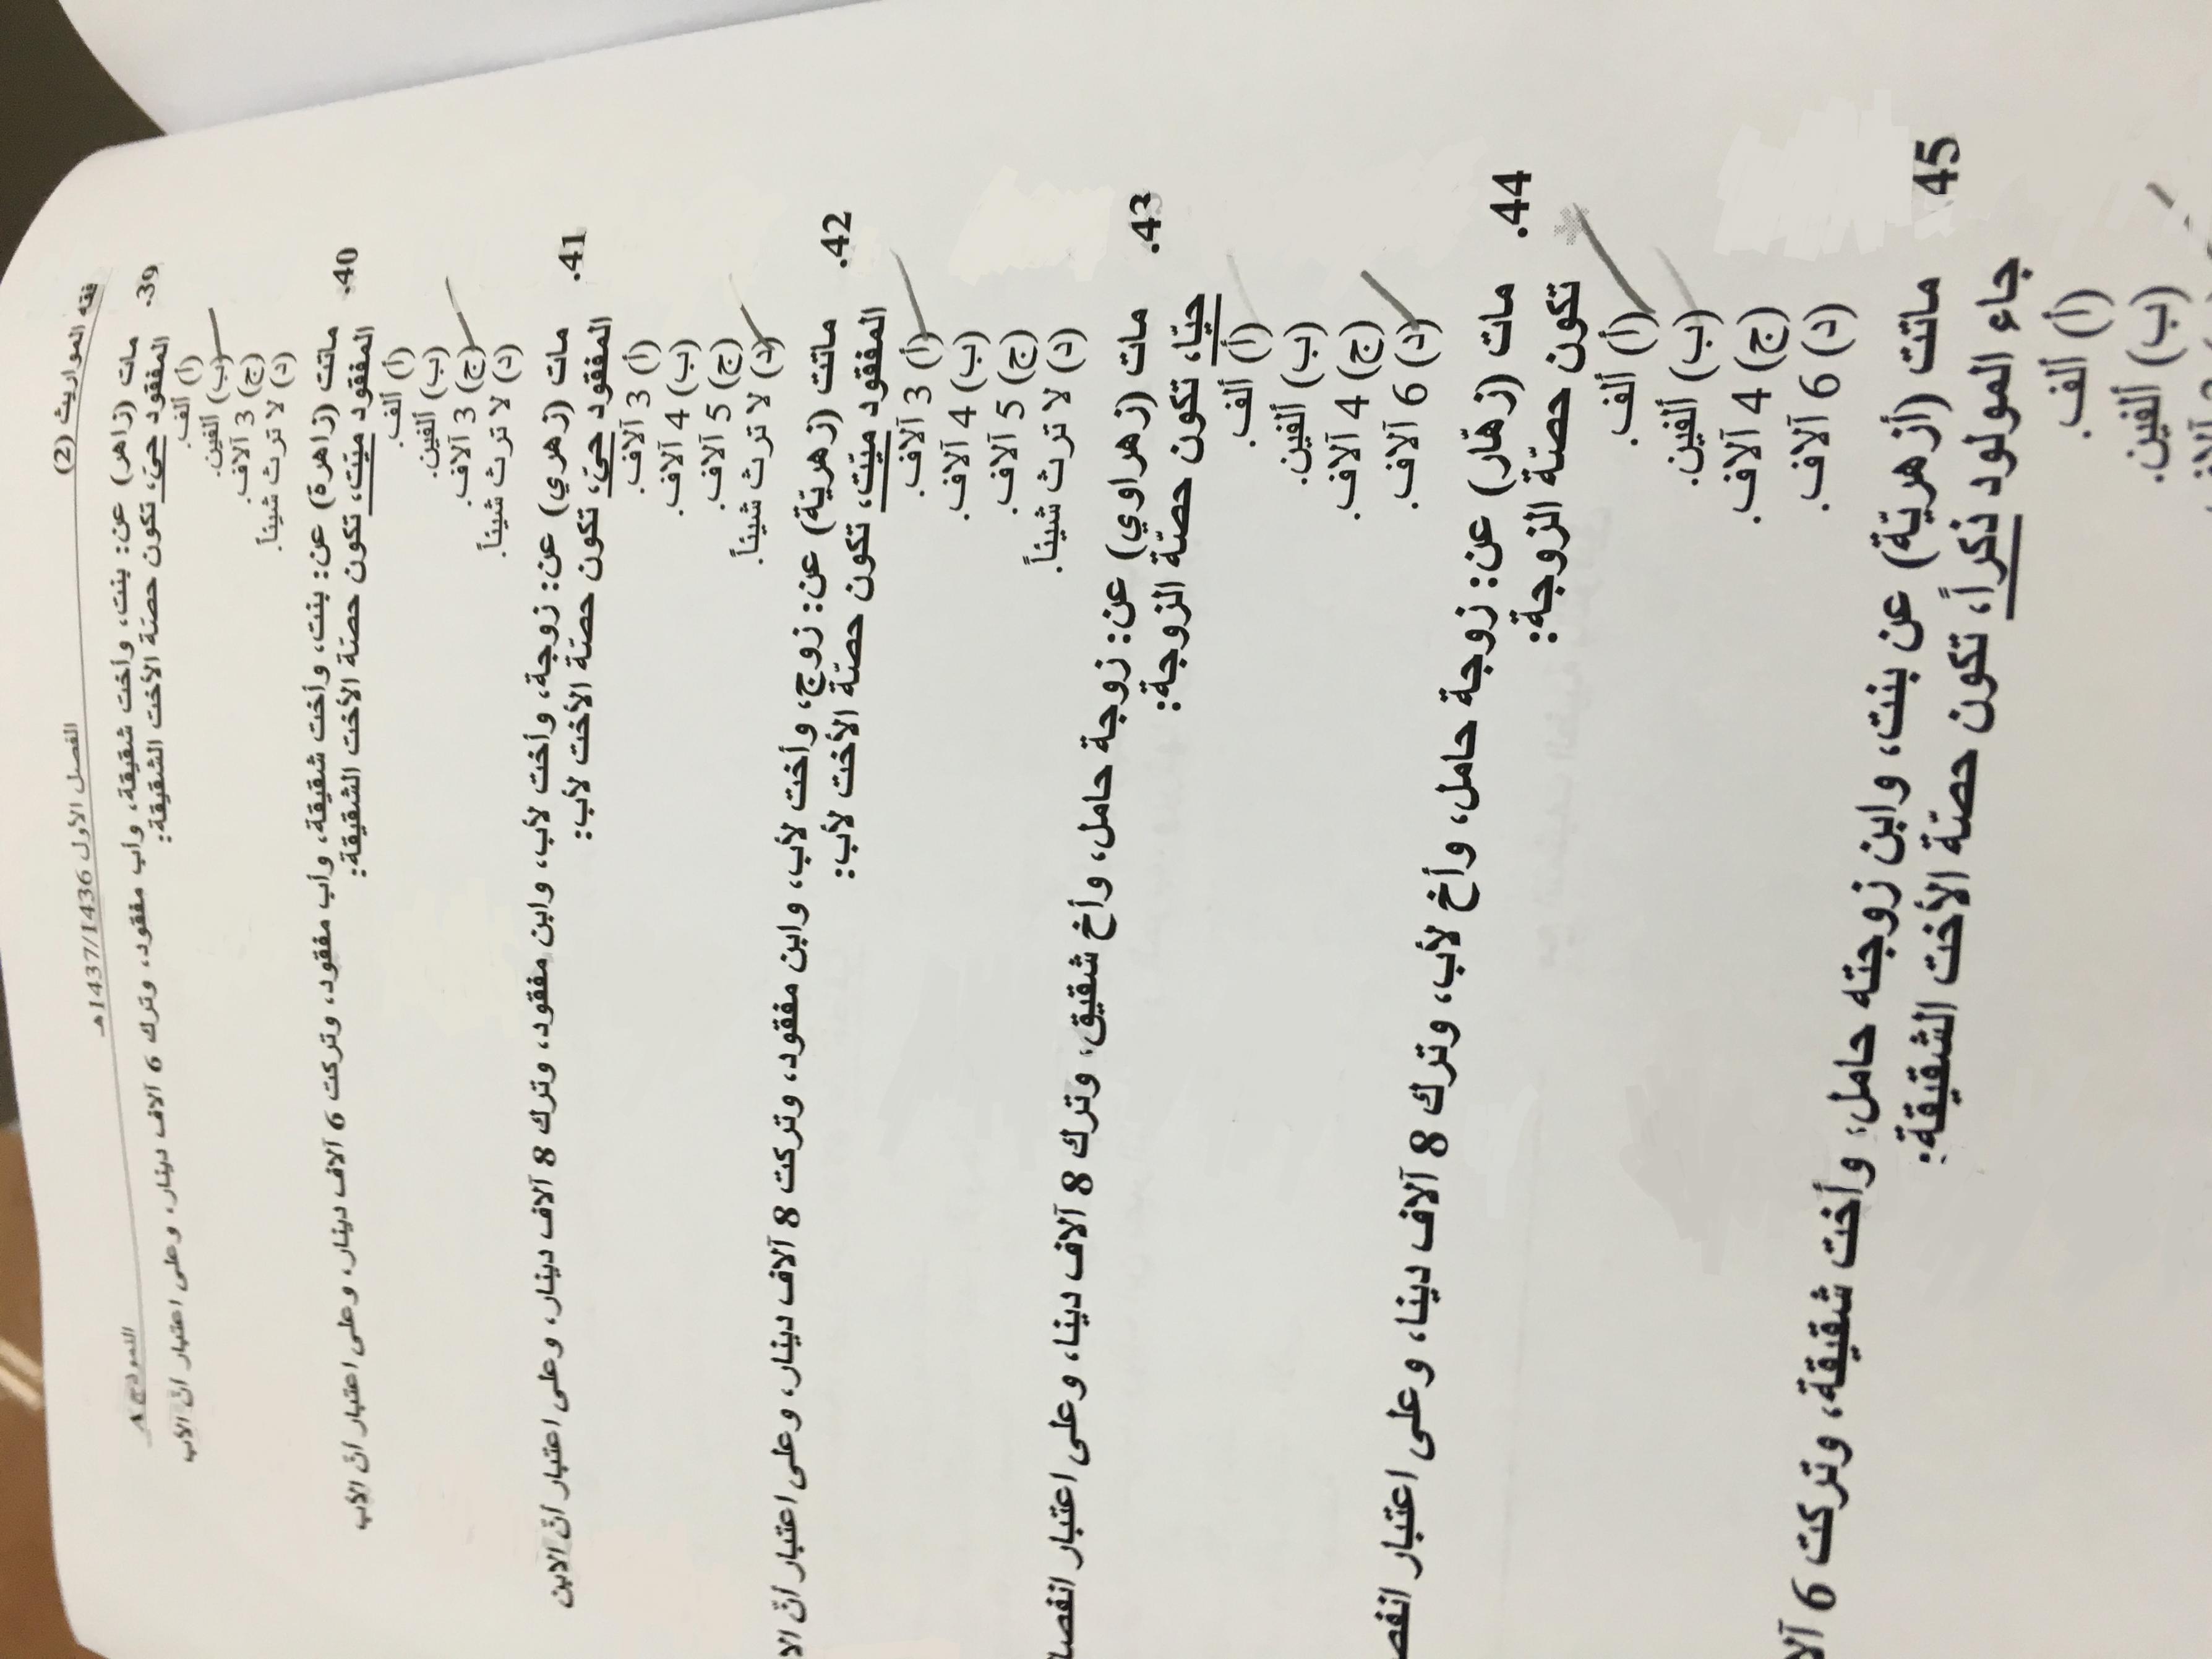 فقه المواريث (2) الفصل الأول 1437/1436هـ النموذج A
39. مات (زاهر) عن: بنت، وأخت شقيقة، وأب مفقود، وترك 6 آلاف دينار، وعلى اعتبار أنّ الأب
المفقود حيّ، تكون حصّة الأخت الشقيقة:
(أ) ألف.
(ب) ألفين.
(ج) 3 آلاف.
(د) لا ترث شيئاً.
40. ماتت (زاهرة) عن: بنت، وأخت شقيقة، وأب مفقود، وتركت 6 آلاف دينار، وعلى اعتبار أنّ الأب
المفقود ميّت، تكون حصّة الأخت الشقيقة:
(أ) ألف.
(ب) ألفين.
(ج) 3 آلاف.
(د) لا ترث شيئاً.
41. مات (زهري) عن: زوجة، وأخت لأب، وابن مفقود، وترك 8 آلاف دينار، وعلى اعتبار أنّ الابن
المفقود حيّ، تكون حصّة الأخت لأب:
(أ) 3 آلاف.
(ب) 4 آلاف.
(ج) 5 آلاف.
(د) لا ترث شيئاً.
42. ماتت (زهريّة) عن: زوج، وأخت لأب، وابن مفقود، وتركت 8 آلاف دينار، وعلى اعتبار أنّ الا
المفقود ميّت، تكون حصّة الأخت لأب:
(أ) 3 آلاف.
(ب) 4 آلاف.
(ج) 5 آلاف.
(د) لا ترث شيئاً.
43. مات (زهراوي) عن: زوجة حامل، وأخ شقيق، وترك 8 آلاف دينا، وعلى اعتبار انفصا
حيّا، تكون حصّة الزوجة:
(أ) ألف.
(ب) ألفين.
(ج) 4 آلاف.
(د) 6 آلاف.
44. مات (زهّار) عن: زوجة حامل، وأخ لأب، وترك 8 آلاف دينا، وعلى اعتبار انفص
تكون حصّة الزوجة:
(أ) ألف.
(ب) ألفين.
(ج) 4 آلاف.
(د) 6 آلاف.
45. ماتت (أزهريّة) عن بنت، وابن زوجته حامل، وأخت شقيقة، وتركت 6 آلا
جاء المولود ذكراً، تكون حصّة الأخت الشقيقة:
(أ) ألف.
(ب) ألفين.